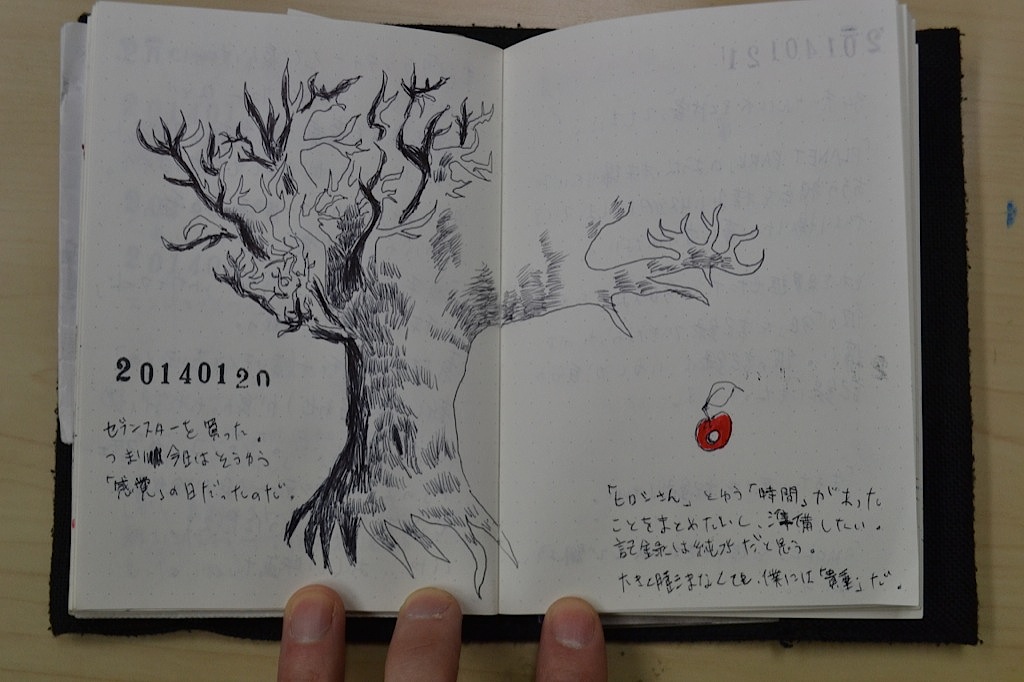 20140120
ゼブンスターを買った。
つまり 今日はそうゆう
「感覚」の日だったのだ。
「ヒロシさん」とゆう「時間」があった
ことをまとめたいし、準備したい。
記録は純水だと思う。
大きく膨らまなくても、僕には「貴重」だ。
20140121